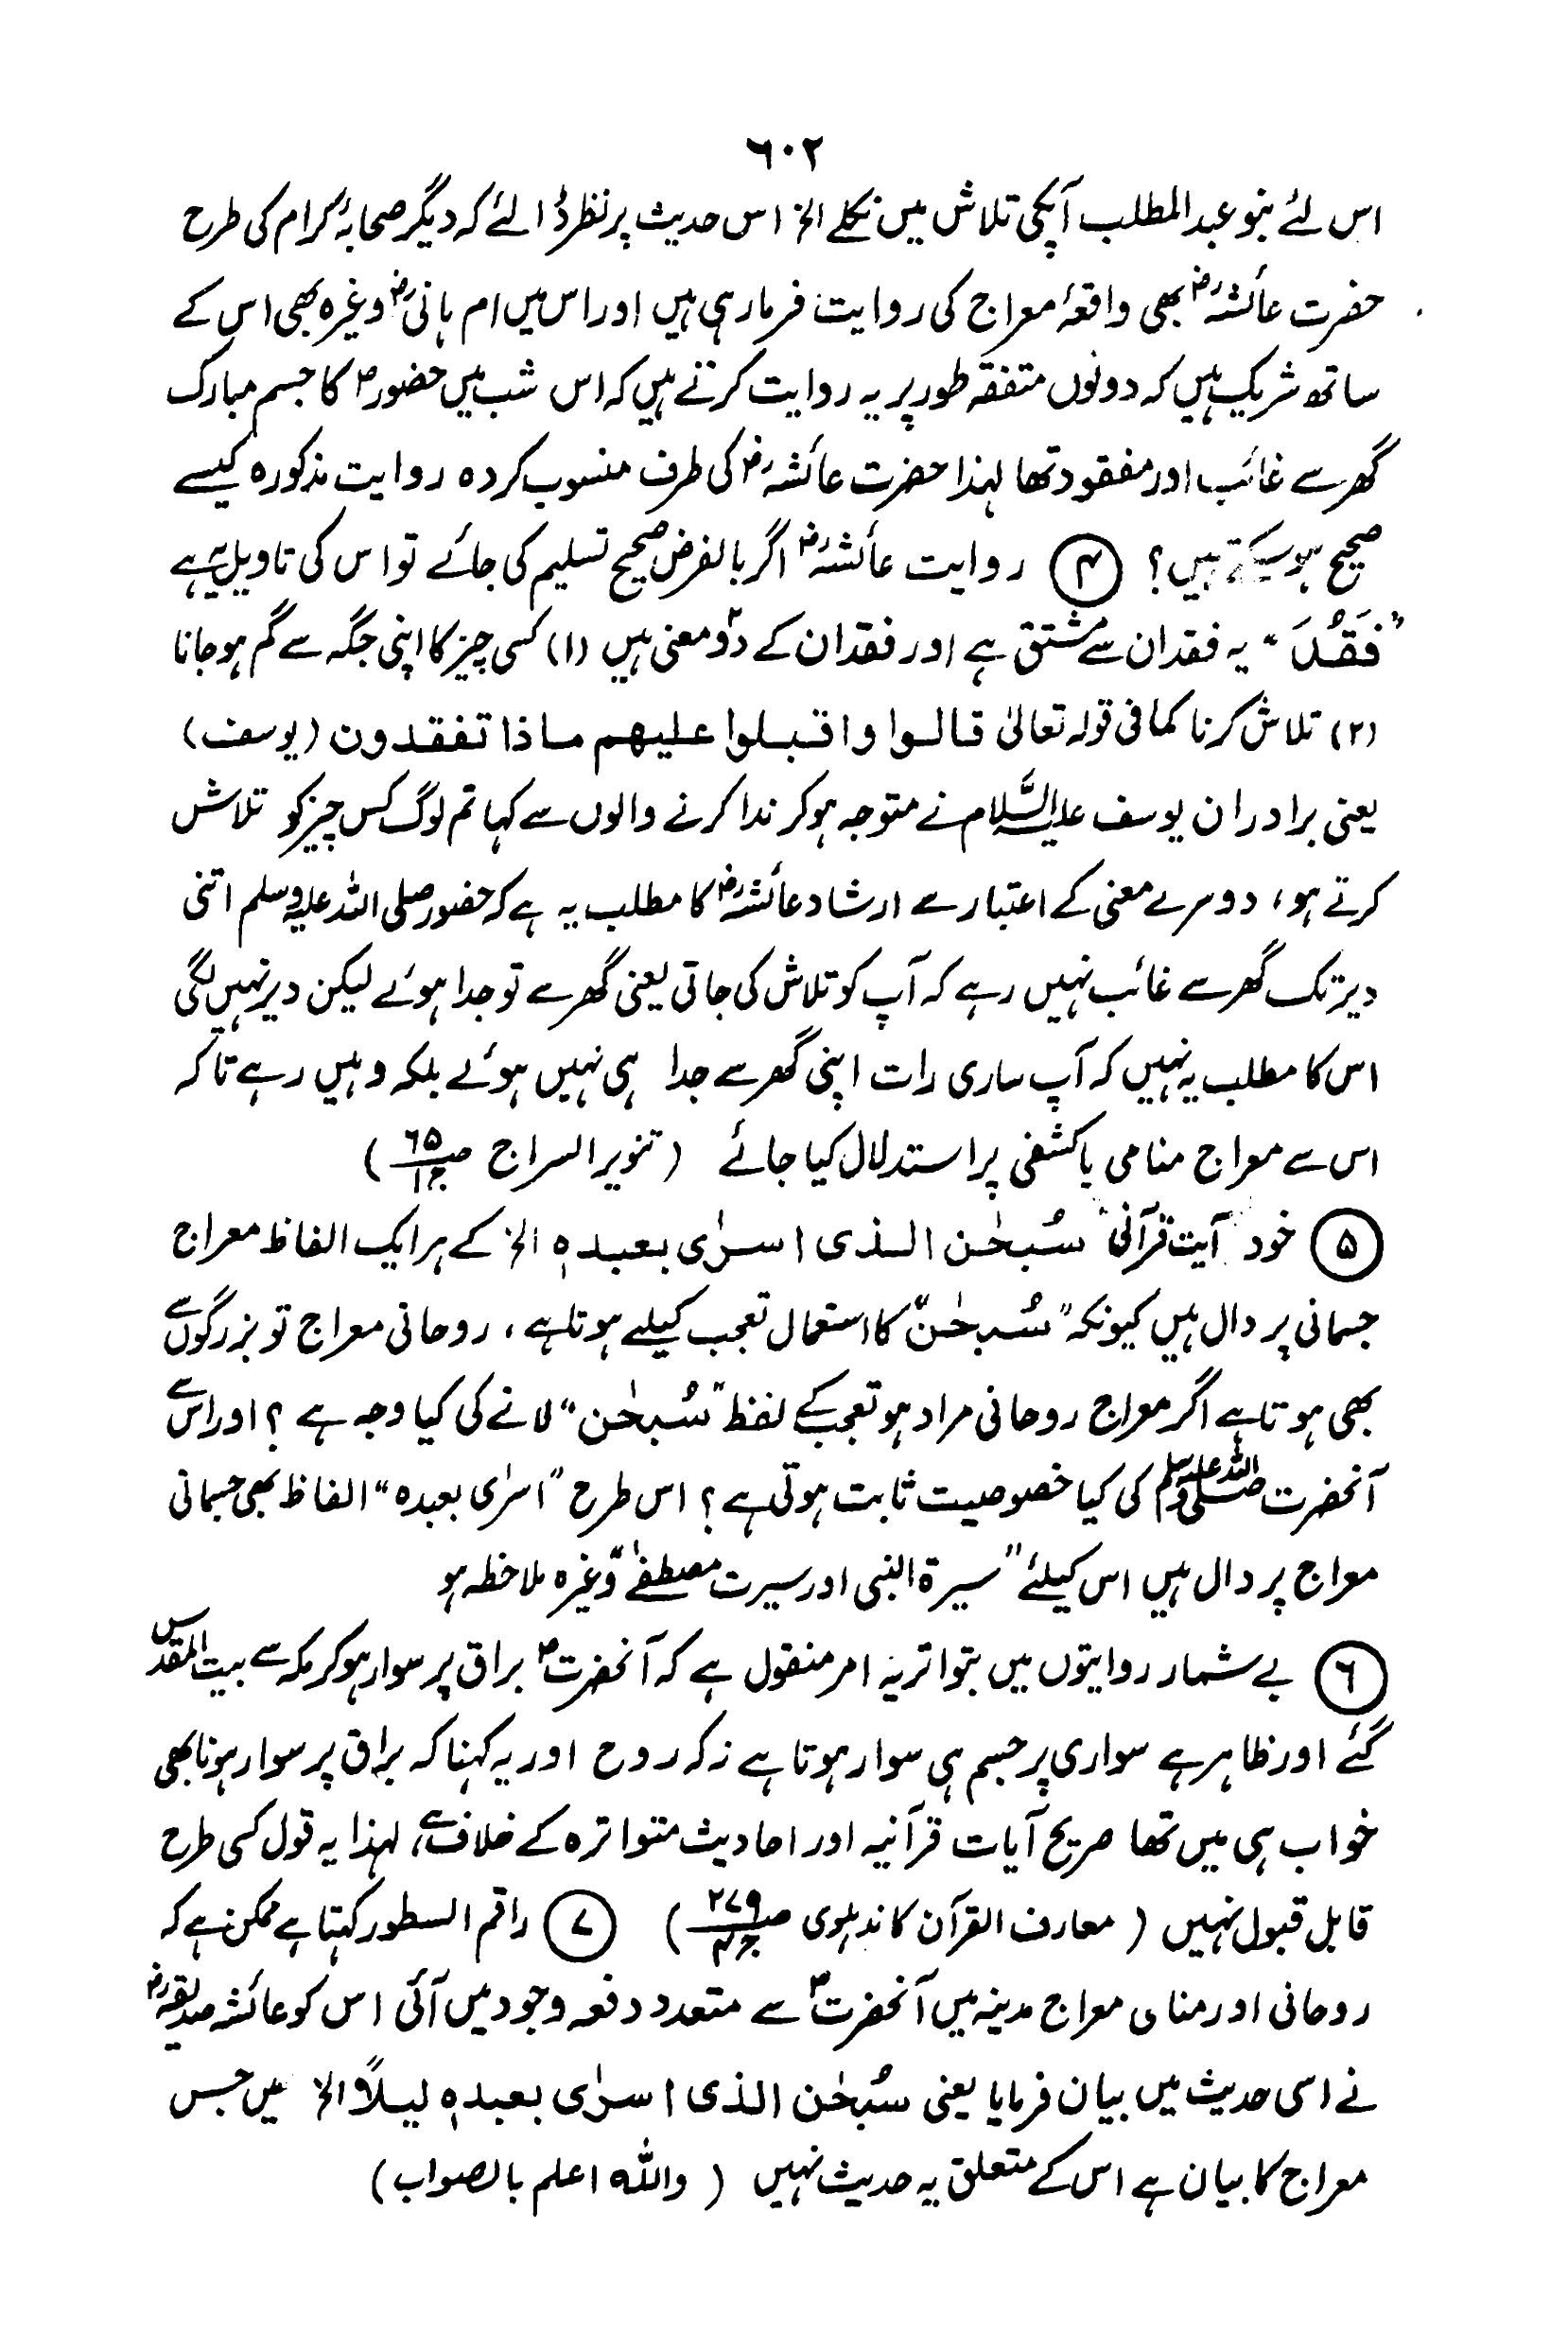 ٦٠٢
اس لئے بنو عبد المطلب آپکی تلاش میں نکلے الخ اس حدیث پر نظر ڈالئے کہ دیگر صحابۂ کرام کی طرح
حضرت عائشہ رض بھی واقعۂ معراج کی روایت فرما رہی ہیں اور اس میں ام ہانی رض وغیرہ بھی اس کے
ساتھ شریک ہیں کہ دونوں متفقہ طور پر یہ روایت کرتے ہیں کہ اس شب میں حضور ص کا جسم مبارک
گھر سے غائب اور مفقود تھا لہذا حضرت عائشہ رض کی طرف منسوب کردہ روایت مذکورہ کیسے
صحیح ہو سکتے ہیں؟ ④ روایت عائشہ رض اگر بالفرض صحیح تسلیم کی جائے تو اس کی تاویل یہ ہے
”فَقُدَ“ یہ فقدان سے مشتق ہے اور فقدان کے دو معنی ہیں (۱) کسی چیز کا اپنی جگہ سے گم ہوجانا
(۲) تلاش کرنا کما فی قولہ تعالیٰ قالوا واقبلوا علیهم ماذا تفقدون (یوسف)
یعنی برادران یوسف علیہ السَّلام نے متوجہ ہوکر ندا کرنے والوں سے کہا تم لوگ کس چیز کو تلاش
کرتے ہو، دوسرے معنی کے اعتبار سے ارشاد عائشہ رض کا مطلب یہ ہے کہ حضور صلی اللہ علیہ وسلم اتنی
دیر تک گھر سے غائب نہیں رہے کہ آپ کو تلاش کی جاتی یعنی گھر سے تو جدا ہوئے لیکن دیر نہیں لگی
اس کا مطلب یہ نہیں کہ آپ ساری رات اپنی گھر سے جدا ہی نہیں ہوئے بلکہ وہیں رہے تاکہ
اس سے معراج منامی یا کشفی پر استدلال کیا جائے (تنویر السراج ص ٦٥ ج ۱)
⑤ خود ”آیت قرآنی“ سُبحٰن الذی اسرٰی بعبدہٖ الخ کے ہر ایک الفاظ معراج
جسمانی پر دال ہیں کیونکہ ”سُبحٰن“ کا استعمال تعجب کیلیے ہوتا ہے، روحانی معراج تو بزرگوں سے
بھی ہوتا ہے اگر معراج روحانی مراد ہو تعجب کے لفظ ”سُبحٰن“ لانے کی کیا وجہ ہے؟ اور اس سے
آنحضرت صلی اللہ علیہ وسلم کی کیا خصوصیت ثابت ہوتی ہے؟ اس طرح ”اسرٰی بعبدہ“ الفاظ بھی جسمانی
معراج پر دال ہیں اس کیلئے ”سیرۃ النبی اور سیرت مصطفےٰ“ وغیرہ ملاخطہ ہو
⑥ بے شمار روایتوں میں بتواتر یہ امر منقول ہے کہ آنحضرت ص براق پر سوار ہوکر مکہ سے بیت المقدس
گئے اور ظاہر ہے سواری پر جسم ہی سوار ہوتا ہے نہ کہ روح اور یہ کہنا کہ براق پر سوار ہونا بھی
خواب ہی میں تھا صریح آیات قرآنیہ اور احادیث متواترہ کے خلاف ہے، لہذا یہ قول کسی طرح
قابل قبول نہیں (معارف القرآن کاندہلوی ص ۲۷۹ ج ۴) ⑦ راقم السطور کہتا ہے ممکن ہے کہ
روحانی اور منامی معراج مدینہ میں آنحضرت ص سے متعدد دفعہ وجود میں آئی اس کو عائشہ صدیقہ رض
نے اسی حدیث میں بیان فرمایا یعنی سُبحٰن الذی اسرٰی بعبدہٖ لیلاً الخ میں جس
معراج کا بیان ہے اس کے متعلق یہ حدیث نہیں (واللہ اعلم بالصواب)